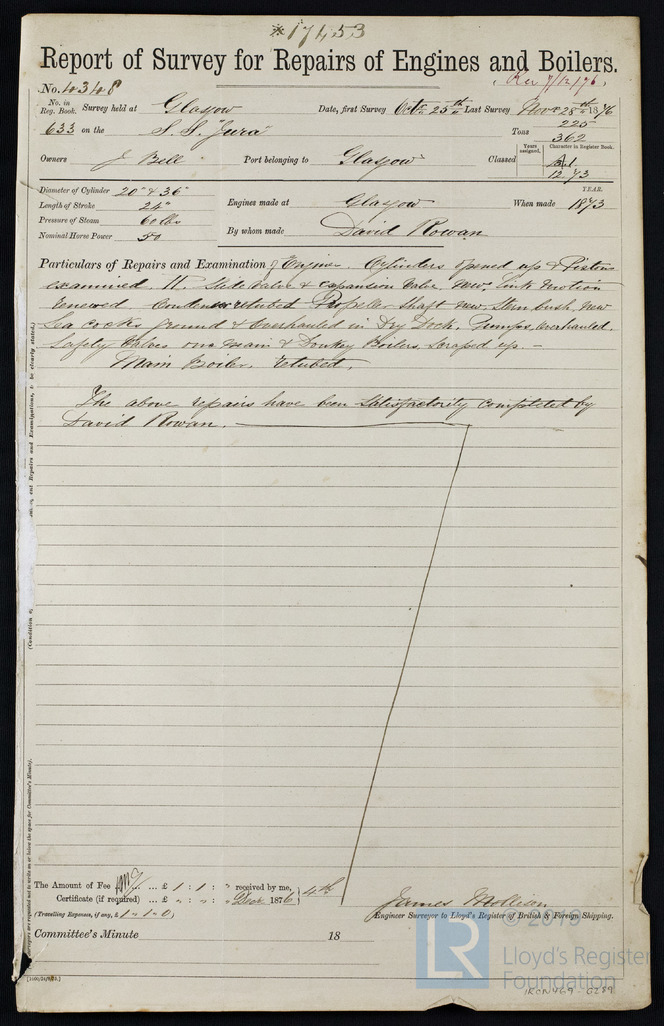 *17453
Report of Survey for Repairs of Engines and Boilers.
No. 4348 Rec 7/12/76.
No. in Reg. Book. Survey held at Glasgow Date, first Survey Octr. 25th Last Survey Novr 28th 1876
633 on the S.S. "Jura" Tons 225 362
Owners J Bell Port belonging to Glasgow Classed Years assigned. Character in Register Book. 12.73
Diameter of Cylinder 20" & 36"
Length of Stroke 24" Engines made at Glasgow When made YEAR. 1873
Pressure of Steam 60 lbs
Nominal Horse Power 50 By whom made David Rowan
Particulars of Repairs and Examination of Engines. Cylinders opened up & Pistons
examined, Slide Valve & expansion Valve new. Link motion
renewed Condenser retubed Propeller Shaft new. Stern bush, new
Sea cocks ground & overhauled in Dry Dock. Pumps overhauled.
Safety Valves on main & Donkey Boilers. Scraped up. –
Main Boiler, retubed.
The above repairs have been satisfactorily completed by
David Rowan.
The Amount of Fee ... £ 1 : 1 : " received by me,
Certificate (if required) ... £ " : " : " Decr. 1876 4th
(Travelling Expenses, if any, £ 1 " 1 " 0)
James Mollison
Engineer Surveyor to Lloyd's Register of British & Foreign Shipping.
Committee's Minute 18
LR
© 2019
Lloyd's Register
Foundation
IRON469-0289